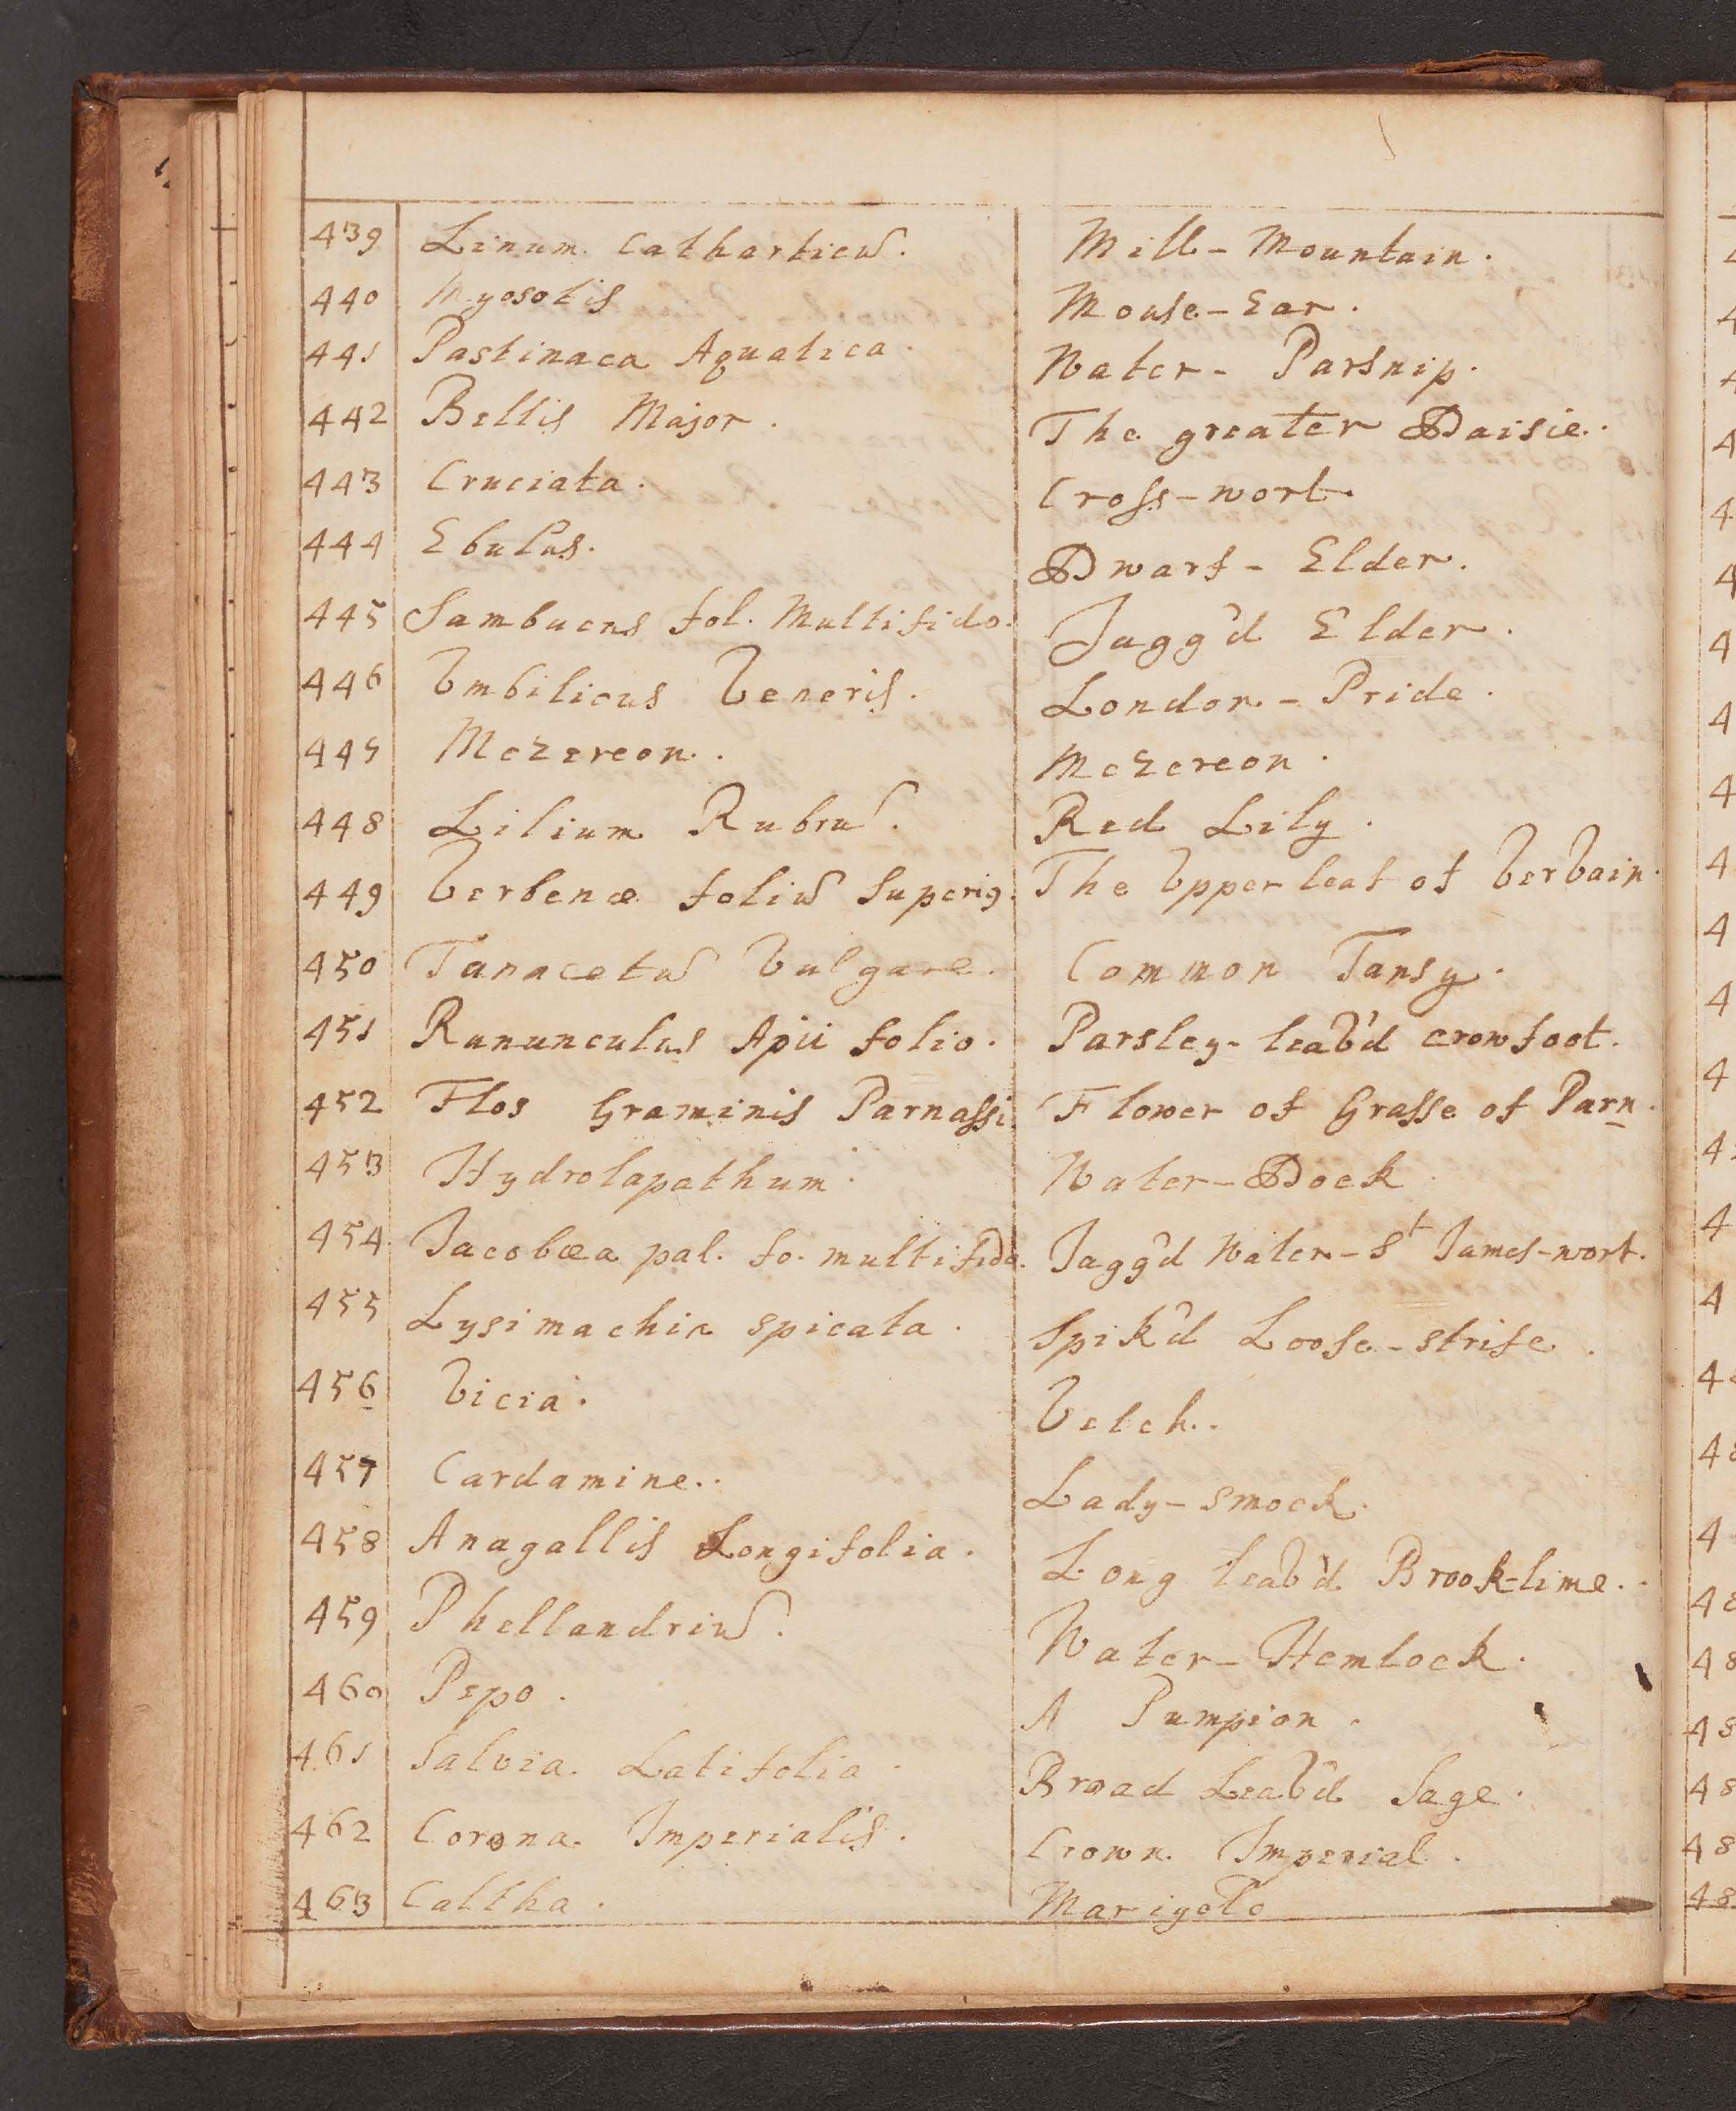 439 Linum Catharticū. Mill-Mountain.
440 Myosotis Mouse-Ear.
441 Pastinaca Aquatica. Water-Parsnip.
442 Bellis Major. The greater Daisie.
443 Cruciata. Cross-wort.
444 Ebulus. Dwarf-Elder.
445 Sambucus fol. Multifido. Jagg'd Elder.
446 Vmbilicus Veneris. London-Pride.
447 Mezereon. Mezereon.
448 Lilium Rubrū. Red Lily.
449 Verbenæ foliū Superiꝰ. The Vpper leaf of Vervain.
450 Tanacetū Vulgare. Common Tansy.
451 Ranunculus Apii folio. Parsley-leav'd crowfoot.
452 Flos Graminis Parnassi. Flower of Grasse of Parn.
453 Hydrolapathum. Water-Dock
454 Jacobæa pal. fo. multifido. Jagg'd Water-St James-wort.
455 Lysimachia spicata. Spik'd Loose-strife.
456 Vicia. Vetch.
457 Cardamine. Lady-smock.
458 Anagallis Longifolia. Long leav'd Brook-lime.
459 Phellandriū. Water-Hemlock.
460 Pepo. A Pumpion.
461 Salvia Latifolia. Broad Leav'd Sage.
462 Corona Imperialis. Crown Imperial.
463 Caltha. Marigold